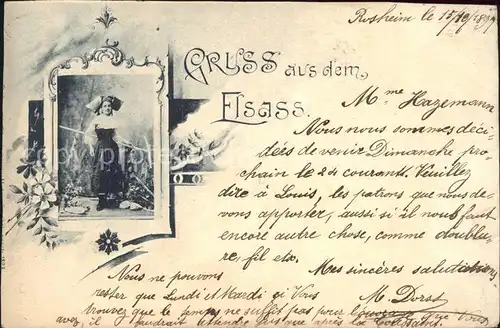 Rosheim le 15/10/1897
GRUSS aus dem
Elsass.
Mme Hazemann
Nous nous sommes déci-
dées de venir Dimanche pro-
chain le 24 courant. Veuillez
dire à Louis, les patrons que nous de-
vons apporter, aussi si il nous faut
encore autre chose, comme doublu-
re, fil etc.
Mes sincères salutations
M. Dorst
Nous ne pouvons
rester que Lundi et Mardi si Vous
trouvez que le temps ne suffit pas pour l'ouvrage que Vous
avez, il faudrait attendre jusque après la Toussaint.